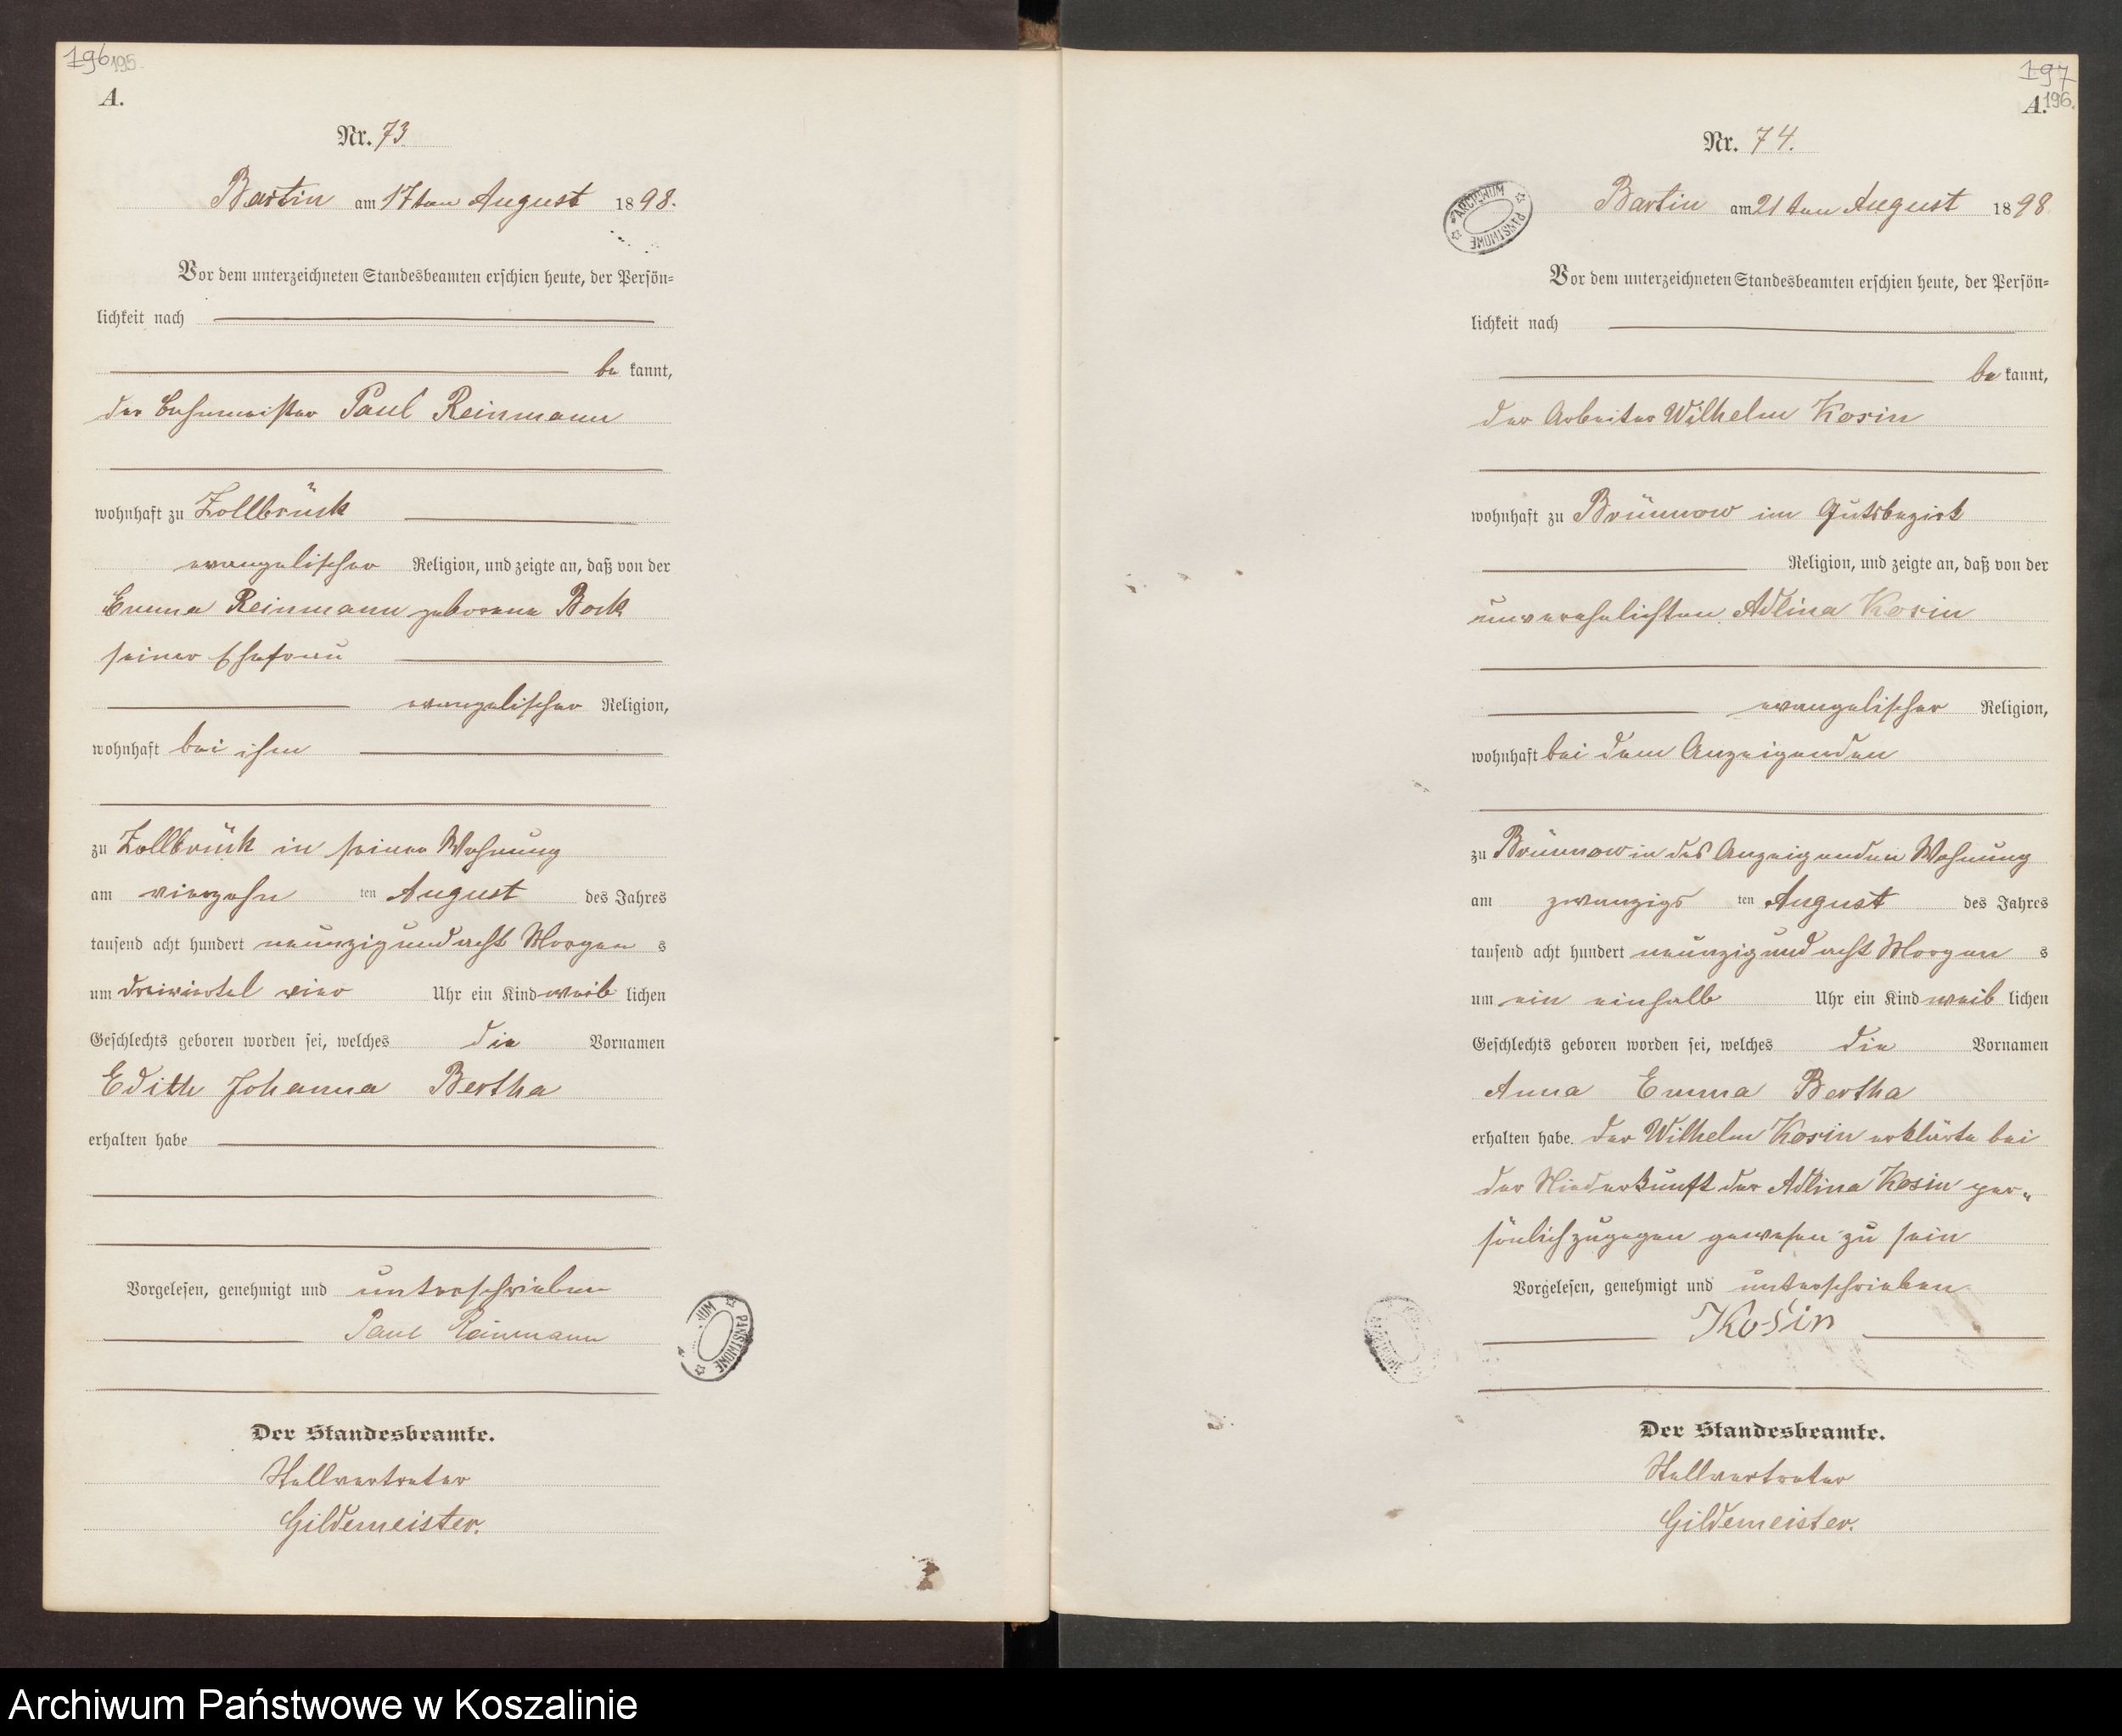 196 195.
A.
Nr. 73.
Bartin am 17ten August 1898.
Vor dem unterzeichneten Standesbeamten erschien heute, der Persön=
lichkeit nach
be kannt,
der Bahnmeister Paul Reinmann
wohnhaft zu Zollbrück
evangelischer Religion, und zeigte an, daß von der
Emma Reinmann geborene Bock
seiner Ehefrau
evangelischer Religion,
wohnhaft bei ihm
zu Zollbrück in seiner Wohnung
am vierzehn ten August des Jahres
tausend acht hundert neunzig und acht Morgen s
um dreiviertel vier Uhr ein Kind weib lichen
Geschlechts geboren worden sei, welches die Vornamen
Edith Johanna Bertha
erhalten habe
Vorgelesen, genehmigt und unterschrieben
Paul Reinmann
Der Standesbeamte.
Stellvertreter
Gildemeister.
PAŃSTWOWE
197
A. 196.
Nr. 74.
ARCHIWUM PAŃSTWOWE
Bartin am 21ten August 1898
Vor dem unterzeichneten Standesbeamten erschien heute, der Persön=
lichkeit nach
be kannt,
der Arbeiter Wilhelm Kosin
wohnhaft zu Brünnow im Gutsbezirk
Religion, und zeigte an, daß von der
unverehelichten Adline Kosin
evangelischer Religion,
wohnhaft bei dem Anzeigenden
zu Brünnow in des Anzeigenden Wohnung
am zwanzigs ten August des Jahres
tausend acht hundert neunzig und acht Morgen s
um ein einhalb Uhr ein Kind weib lichen
Geschlechts geboren worden sei, welches die Vornamen
Anna Emma Bertha
erhalten habe. Der Wilhelm Kosin erklärte bei
der Niederkunft der Adline Kosin per„
sönlich zugegen gewesen zu sein
Vorgelesen, genehmigt und unterschrieben
Kosin
Der Standesbeamte.
Stellvertreter
Gildemeister.
Archiwum Państwowe w Koszalinie